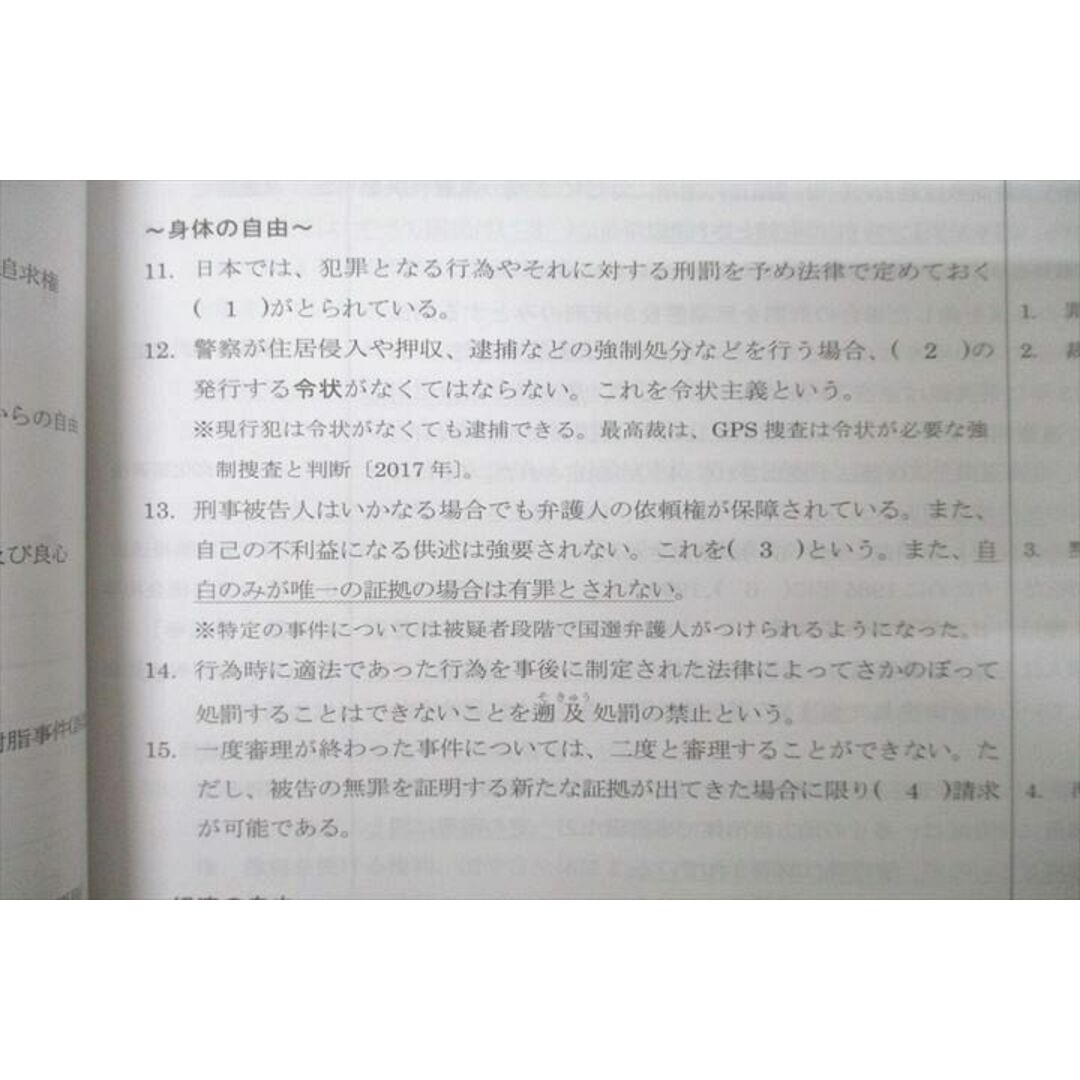 ～身体の自由～
11. 日本では、犯罪となる行為やそれに対する刑罰を予め法律で定めておく
( 1 )がとられている。
1.
12. 警察が住居侵入や押収、逮捕などの強制処分などを行う場合、( 2 )の
2. 裁
発行する令状がなくてはならない。これを令状主義という。
※現行犯は令状がなくても逮捕できる。最高裁は、GPS 捜査は令状が必要な強
制捜査と判断〔2017 年〕。
13. 刑事被告人はいかなる場合でも弁護人の依頼権が保障されている。また、
自己の不利益になる供述は強要されない。これを( 3 )という。また、自
3.
白のみが唯一の証拠の場合は有罪とされない。
※特定の事件については被疑者段階で国選弁護人がつけられるようになった。
14. 行為時に適法であった行為を事後に制定された法律によってさかのぼって
そ きゅう
処罰することはできないことを遡及処罰の禁止という。
15. 一度審理が終わった事件については、二度と審理することができない。た
だし、被告の無罪を証明する新たな証拠が出てきた場合に限り( 4 )請求
4.
が可能である。
追求権
からの自由
及び良心
樹脂事件